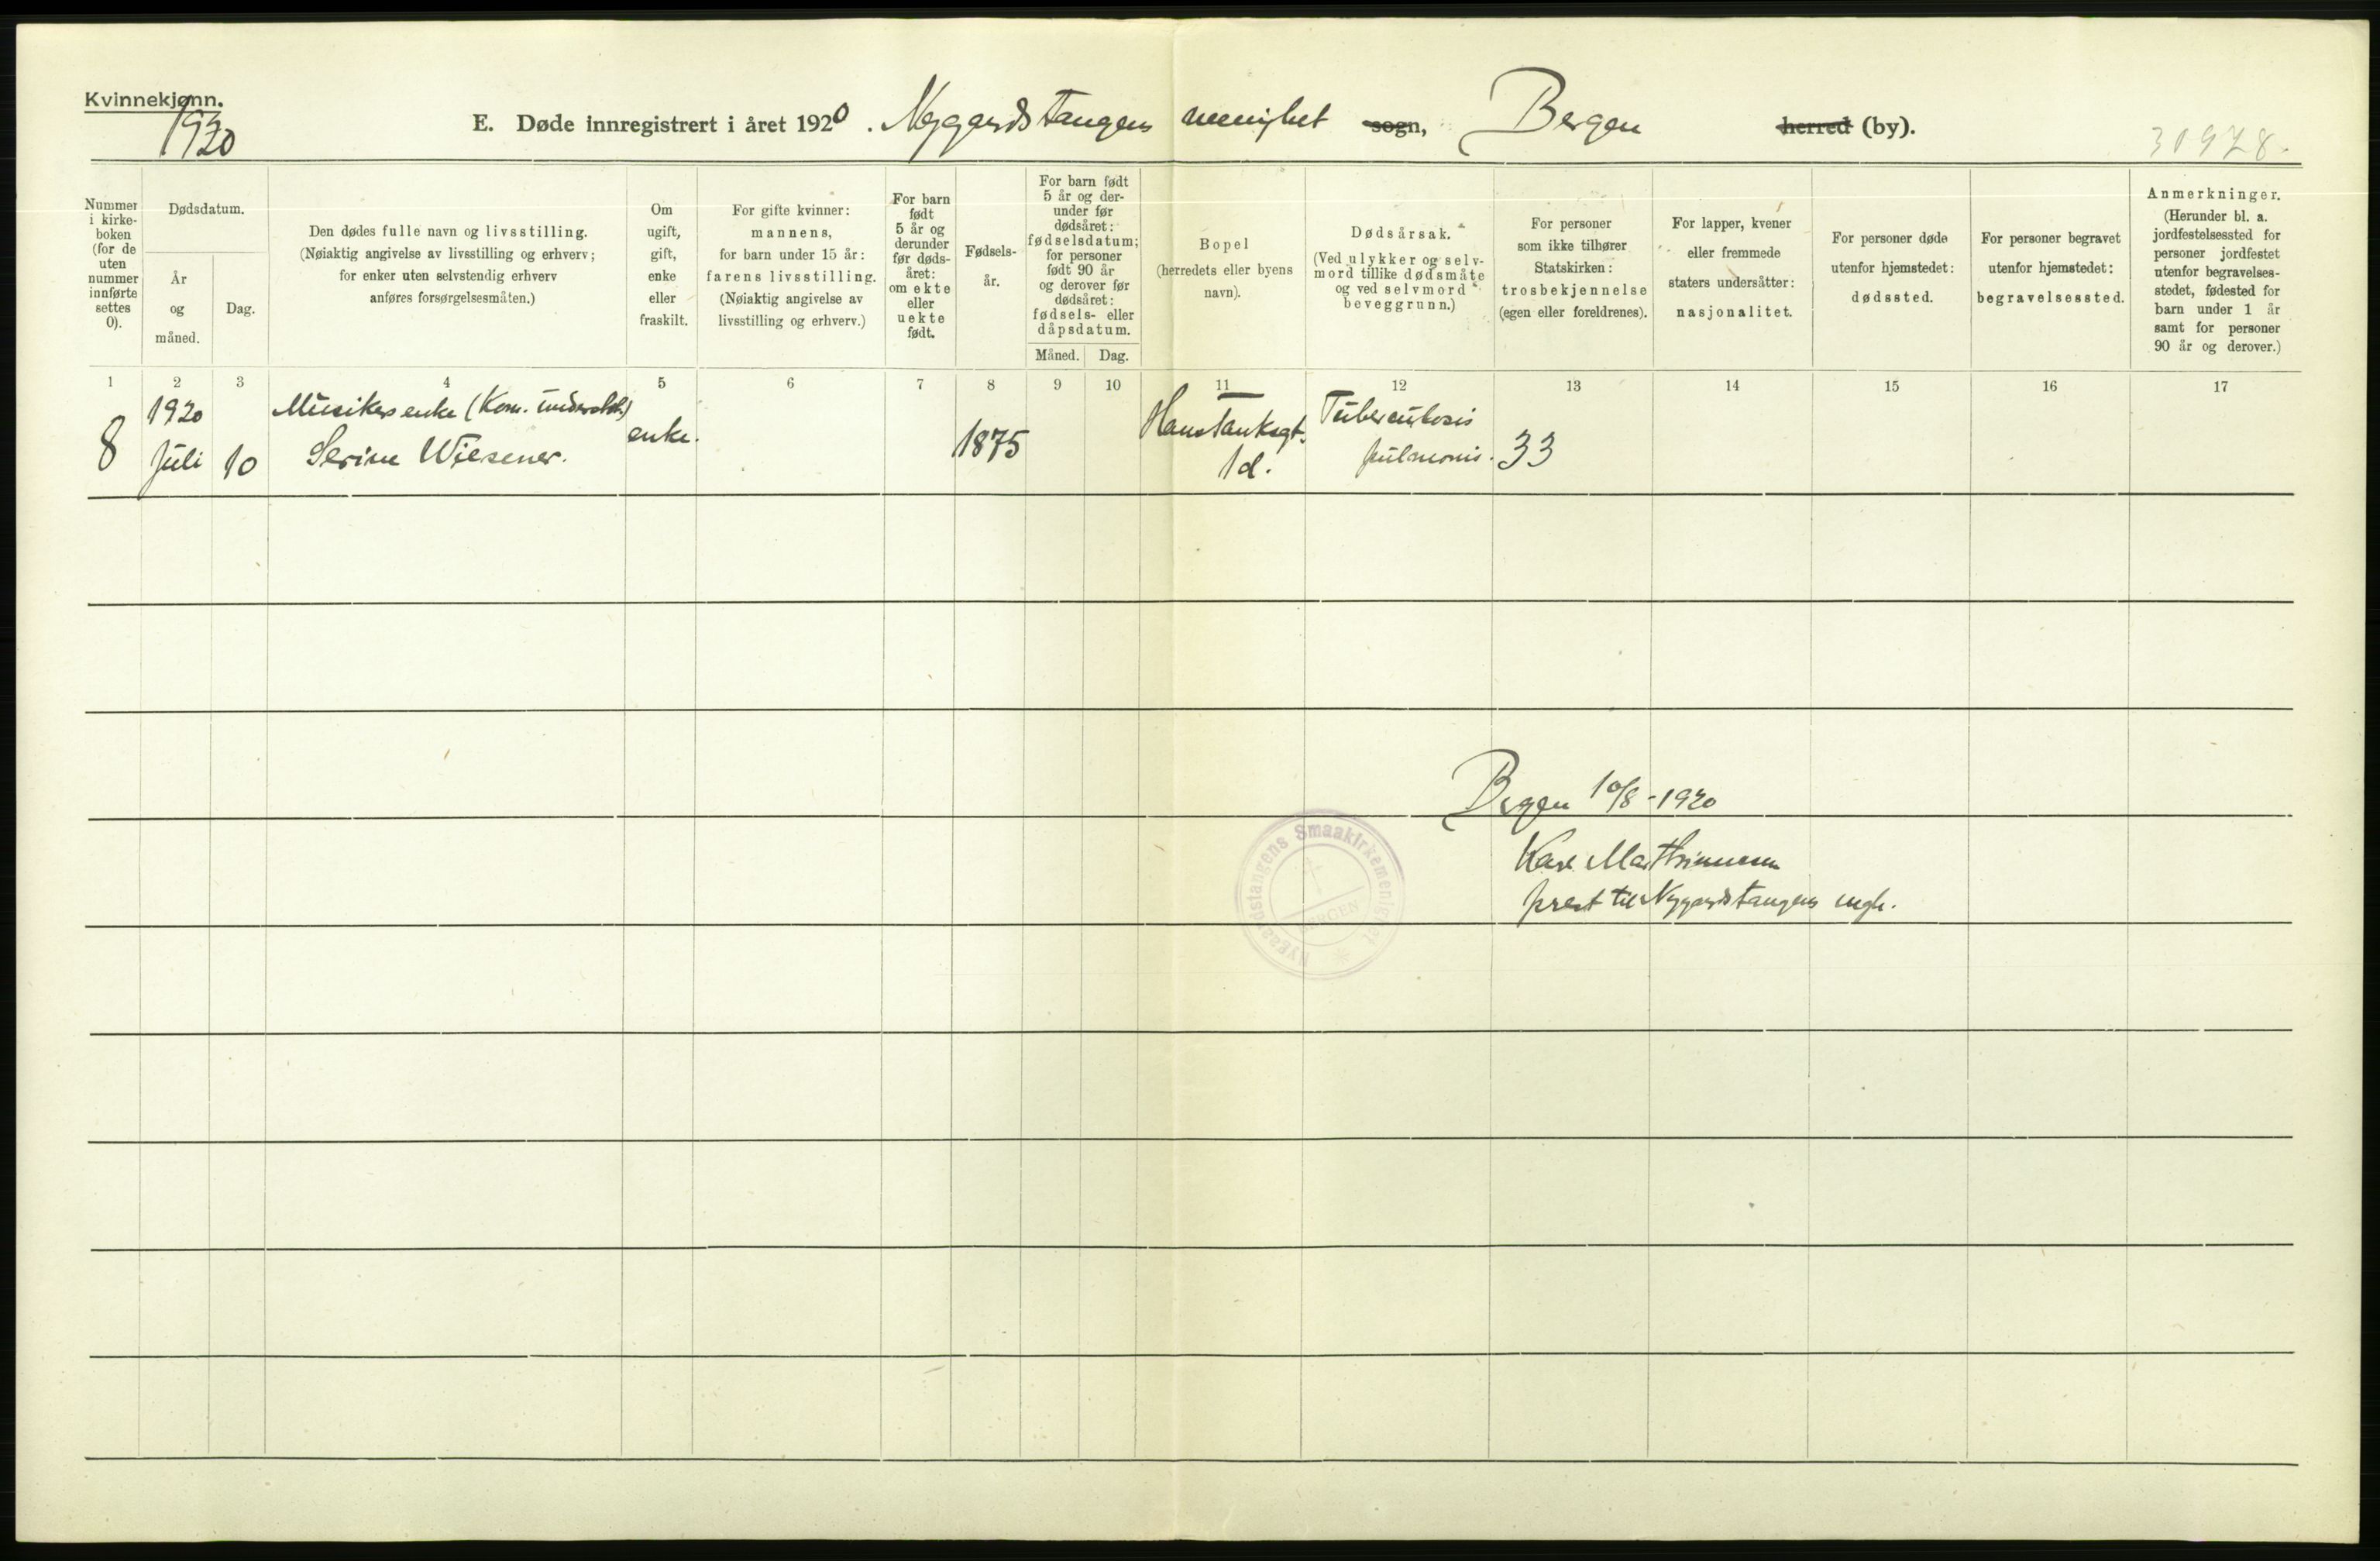 Kvinnekjønn.
1920
E. Døde innregistrert i året 1920. Nygaardstangens menighet sogn, Bergen herred (by).
30978.
Nummer i kirke-boken (for de uten nummer innførte settes 0).
Dødsdatum.
År og måned.
Dag.
Den dødes fulle navn og livsstilling.
(Nøiaktig angivelse av livsstilling og erhverv;
for enker uten selvstendig erhverv
anføres forsørgelsesmåten.)
Om
ugift,
gift,
enke
eller
fraskilt.
For gifte kvinner:
mannens,
for barn under 15 år:
farens livsstilling.
(Nøiaktig angivelse av
livsstilling og erhverv.)
For barn
født
5 år og
derunder
før døds-
året:
om ekte
eller
uekte
født.
Fødsels-
år.
For barn født
5 år og der-
under før
dødsåret:
fødselsdatum;
for personer
født 90 år
og derover før
dødsåret:
fødsels- eller
dåpsdatum.
Måned. Dag.
Bopel
(herredets eller byens
navn).
Dødsårsak.
(Ved ulykker og selv-
mord tillike dødsmåte
og ved selvmord
beveggrunn.)
For personer
som ikke tilhører
Statskirken:
trosbekjennelse
(egen eller foreldrenes).
For lapper, kvener
eller fremmede
staters undersåtter:
nasjonalitet.
For personer døde
utenfor hjemstedet:
dødssted.
For personer begravet
utenfor hjemstedet:
begravelsessted.
Anmerkninger.
(Herunder bl. a.
jordfestelsessted for
personer jordfestet
utenfor begravelses-
stedet, fødested for
barn under 1 år
samt for personer
90 år og derover.)
1 2 3 4 5 6 7 8 9 10 11 12 13 14 15 16 17
8
1920
Juli
10
Musikers enke (Kom. understøt.)
Serine Wiesener.
enke.
1875
Hans Tanksgt.
1d.
Tuberculosis
pulmonis.
33
Bergen 10/8-1920
Nygaardstangens Smaakirkemenighet
BERGEN
prest til Nygaardstangens mgh.